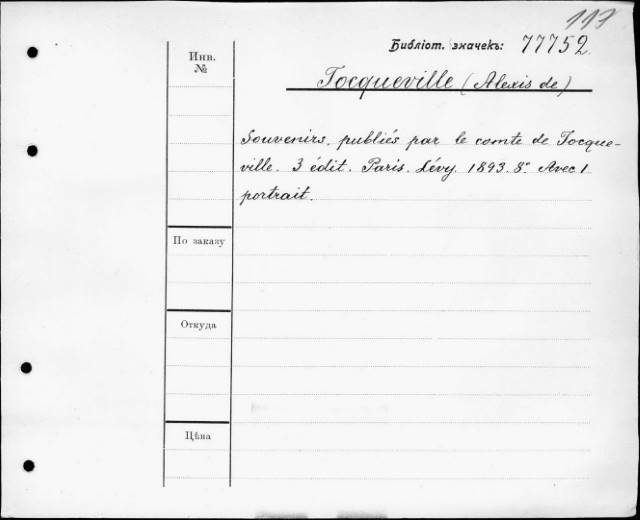 117
Библіот. значекъ: 77752.
Инв. №
Tocqueville (Alexis de)
Souvenirs, publiés par le comte de Tocque-
ville. 3 édit. Paris. Lévy. 1893. 8º. Avec 1
portrait.
По заказу
Откуда
Цѣна